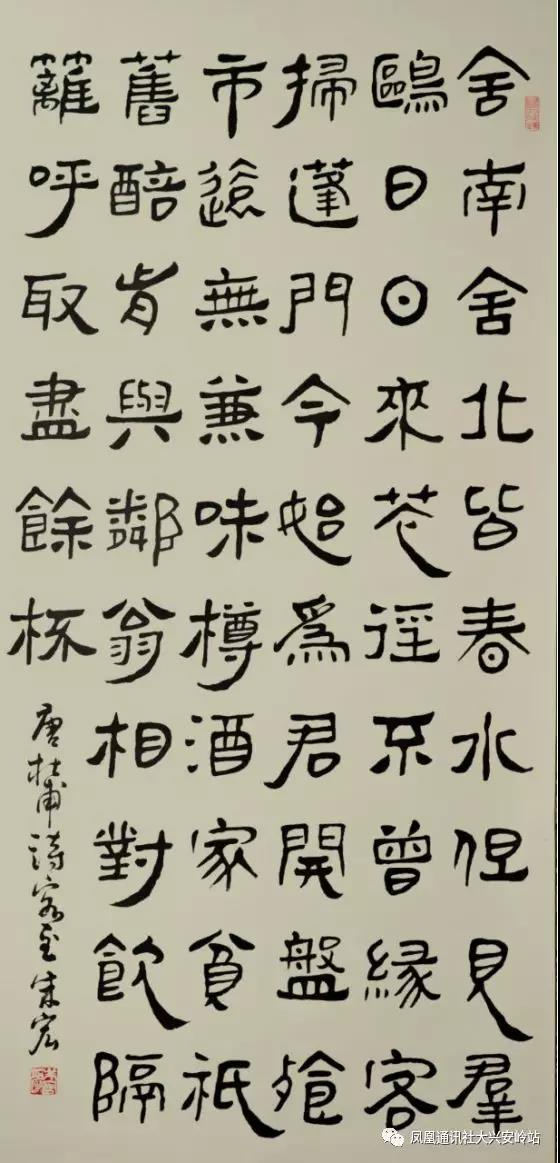 舍南舍北皆春水但見羣
鷗日日來花徑不曾緣客
掃蓬門今始爲君開盤飧
市遠無兼味樽酒家貧祇
舊醅肯與鄰翁相對飲隔
籬呼取盡餘杯
唐杜甫詩客至
凤凰通讯社大兴安岭站